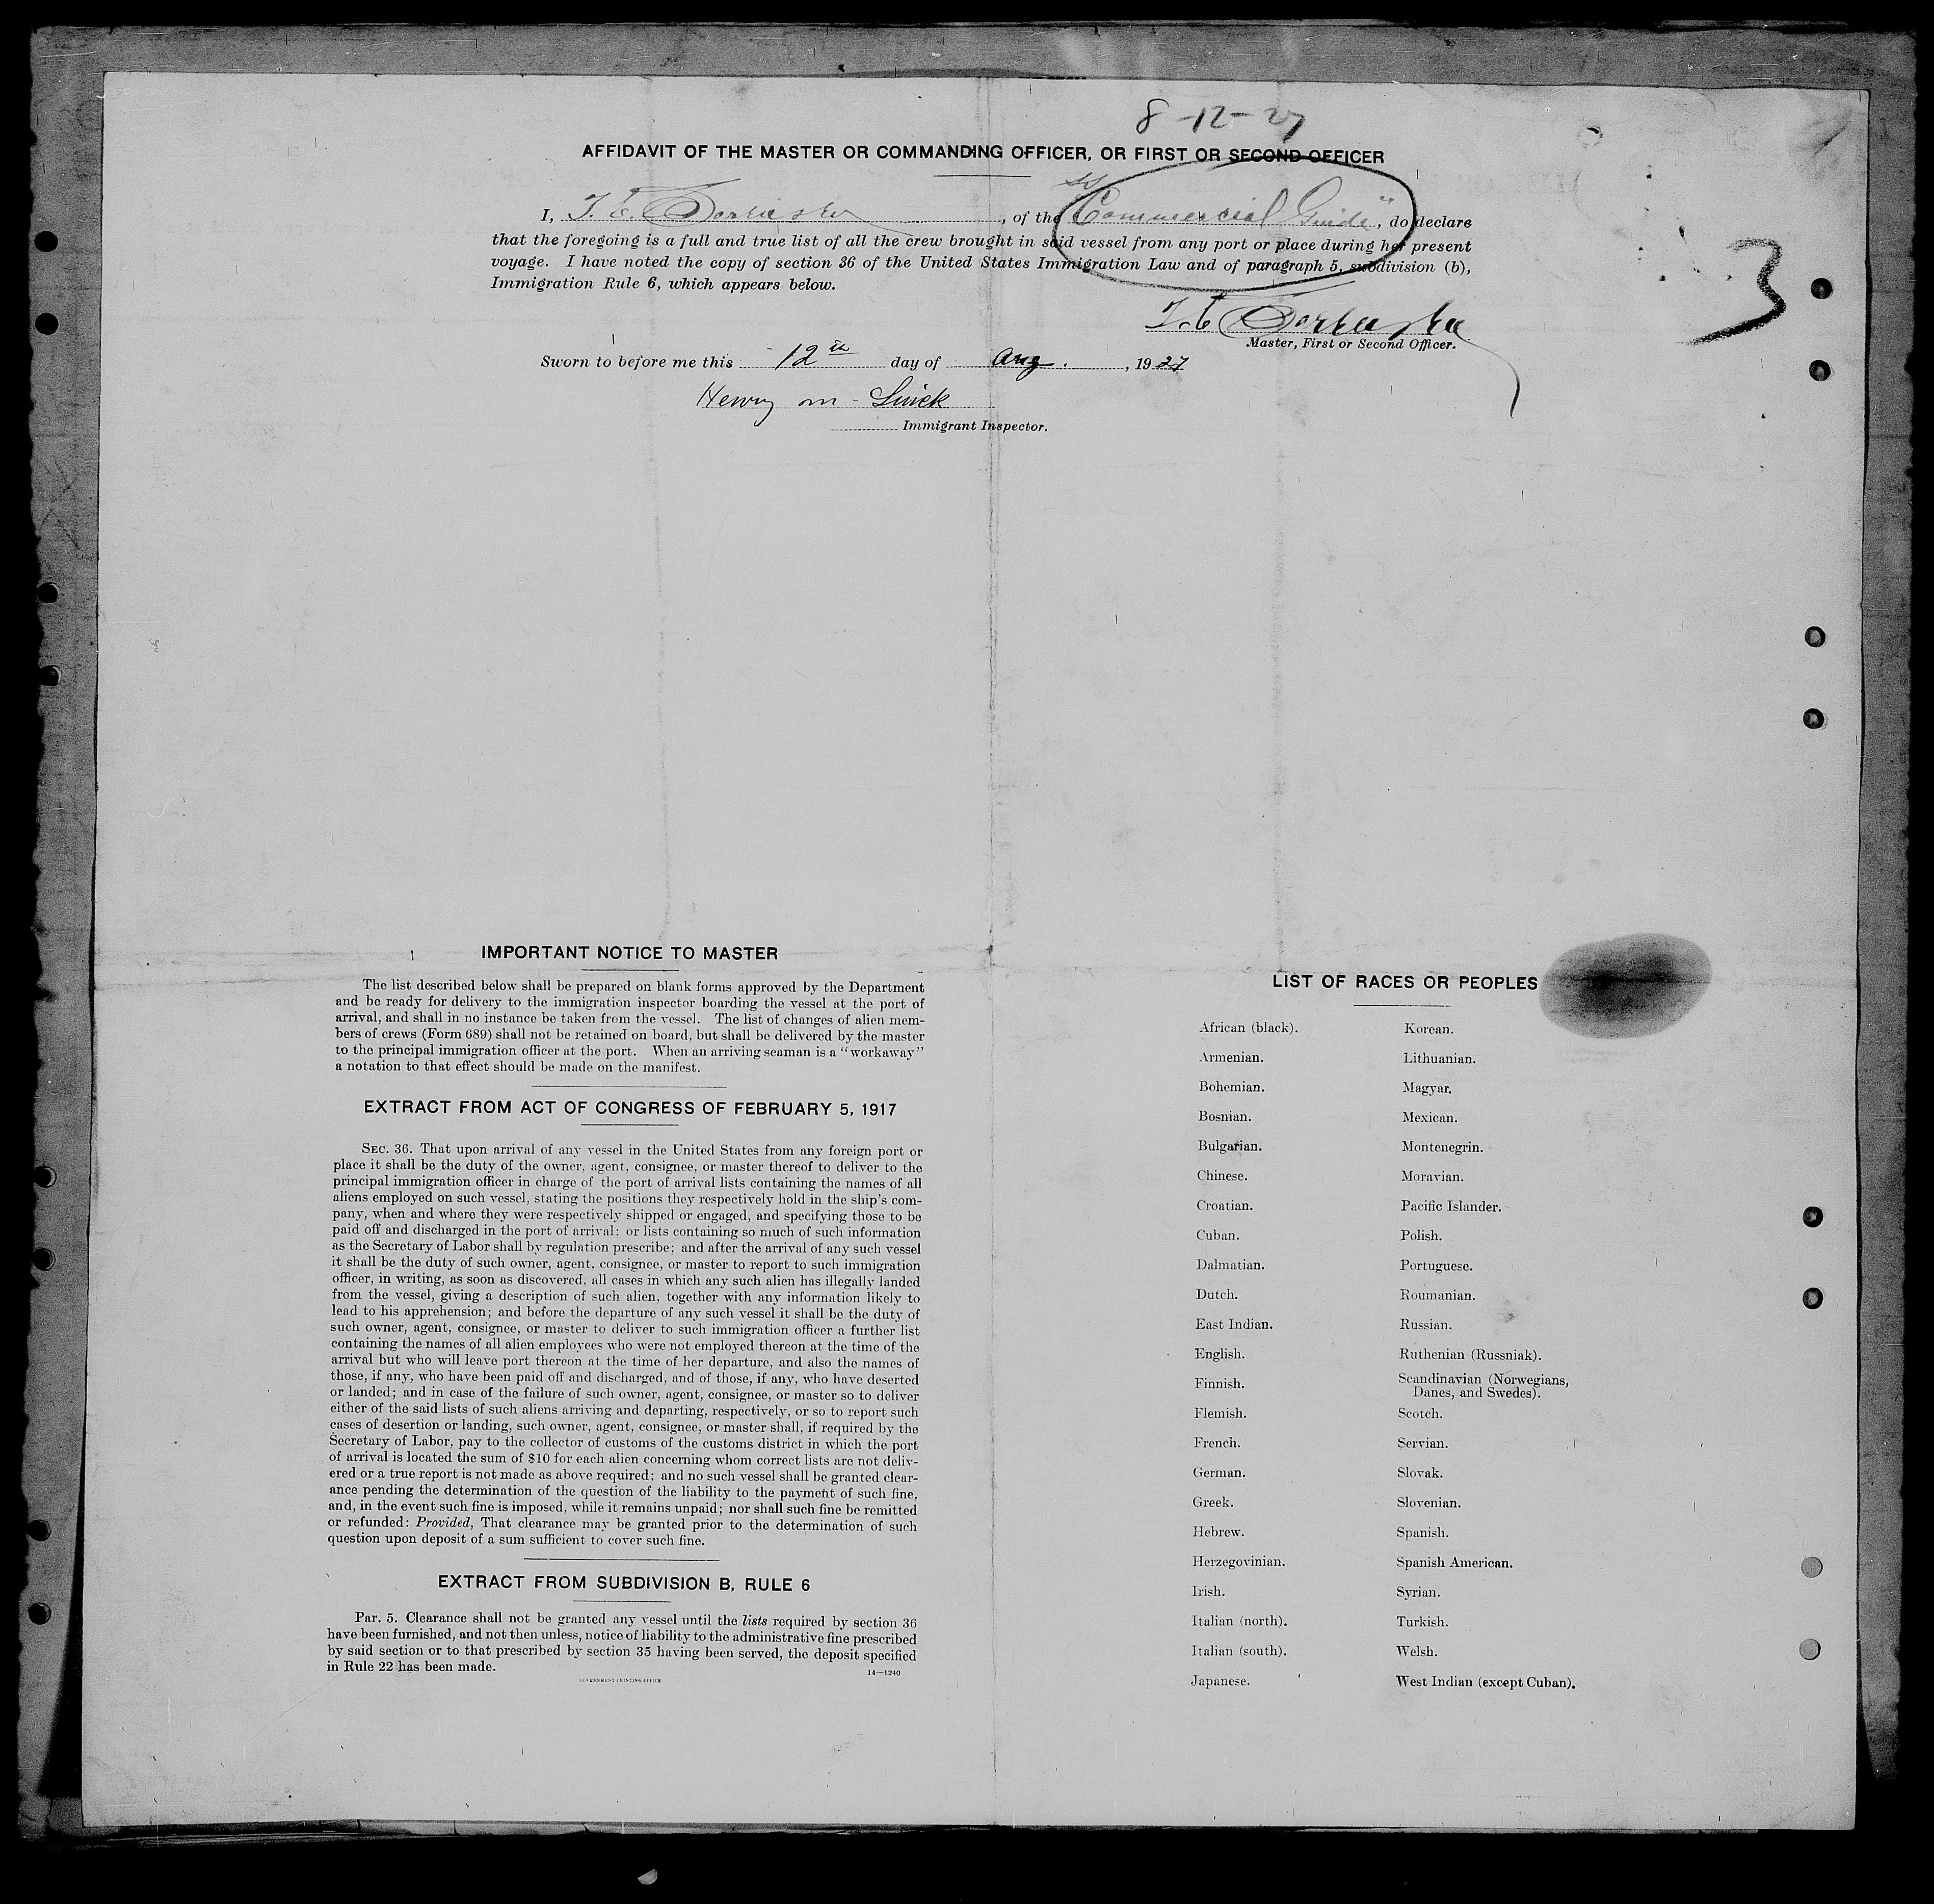 8-12-27
AFFIDAVIT OF THE MASTER OR COMMANDING OFFICER, OR FIRST OR SECOND OFFICER
I, T. E. , of the "Commercial Guide", do declare
that the foregoing is a full and true list of all the crew brought in said vessel from any port or place during her present
voyage. I have noted the copy of section 36 of the United States Immigration Law and of paragraph 5, subdivision (b),
Immigration Rule 6, which appears below.
3
T. E.
Master, First or Second Officer.
Sworn to before me this 12th day of Aug. , 1927
Henry M.
Immigrant Inspector.
IMPORTANT NOTICE TO MASTER
The list described below shall be prepared on blank forms approved by the Department
and be ready for delivery to the immigration inspector boarding the vessel at the port of
arrival, and shall in no instance be taken from the vessel. The list of changes of alien mem-
bers of crews (Form 689) shall not be retained on board, but shall be delivered by the master
to the principal immigration officer at the port. When an arriving seaman is a "workaway"
a notation to that effect should be made on the manifest.
EXTRACT FROM ACT OF CONGRESS OF FEBRUARY 5, 1917
SEC. 36. That upon arrival of any vessel in the United States from any foreign port or
place it shall be the duty of the owner, agent, consignee, or master thereof to deliver to the
principal immigration officer in charge of the port of arrival lists containing the names of all
aliens employed on such vessel, stating the positions they respectively hold in the ship's com-
pany, when and where they were respectively shipped or engaged, and specifying those to be
paid off and discharged in the port of arrival; or lists containing so much of such information
as the Secretary of Labor shall by regulation prescribe; and after the arrival of any such vessel
it shall be the duty of such owner, agent, consignee, or master to report to such immigration
officer, in writing, as soon as discovered, all cases in which any such alien has illegally landed
from the vessel, giving a description of such alien, together with any information likely to
lead to his apprehension; and before the departure of any such vessel it shall be the duty of
such owner, agent, consignee, or master to deliver to such immigration officer a further list
containing the names of all alien employees who were not employed thereon at the time of the
arrival but who will leave port thereon at the time of her departure, and also the names of
those, if any, who have been paid off and discharged, and of those, if any, who have deserted
or landed; and in case of the failure of such owner, agent, consignee, or master so to deliver
either of the said lists of such aliens arriving and departing, respectively, or so to report such
cases of desertion or landing, such owner, agent, consignee, or master shall, if required by the
Secretary of Labor, pay to the collector of customs of the customs district in which the port
of arrival is located the sum of $10 for each alien concerning whom correct lists are not deliv-
ered or a true report is not made as above required; and no such vessel shall be granted clear-
ance pending the determination of the question of the liability to the payment of such fine,
and, in the event such fine is imposed, while it remains unpaid; nor shall such fine be remitted
or refunded: Provided, That clearance may be granted prior to the determination of such
question upon deposit of a sum sufficient to cover such fine.
EXTRACT FROM SUBDIVISION B, RULE 6
Par. 5. Clearance shall not be granted any vessel until the lists required by section 36
have been furnished, and not then unless, notice of liability to the administrative fine prescribed
by said section or to that prescribed by section 35 having been served, the deposit specified
in Rule 22 has been made.
14—1240
GOVERNMENT PRINTING OFFICE
LIST OF RACES OR PEOPLES
African (black). Korean.
Armenian. Lithuanian.
Bohemian. Magyar.
Bosnian. Mexican.
Bulgarian. Montenegrin.
Chinese. Moravian.
Croatian. Pacific Islander.
Cuban. Polish.
Dalmatian. Portuguese.
Dutch. Roumanian.
East Indian. Russian.
English. Ruthenian (Russniak).
Finnish. Scandinavian (Norwegians,
Danes, and Swedes).
Flemish. Scotch.
French. Servian.
German. Slovak.
Greek. Slovenian.
Hebrew. Spanish.
Herzegovinian. Spanish American.
Irish. Syrian.
Italian (north). Turkish.
Italian (south). Welsh.
Japanese. West Indian (except Cuban).